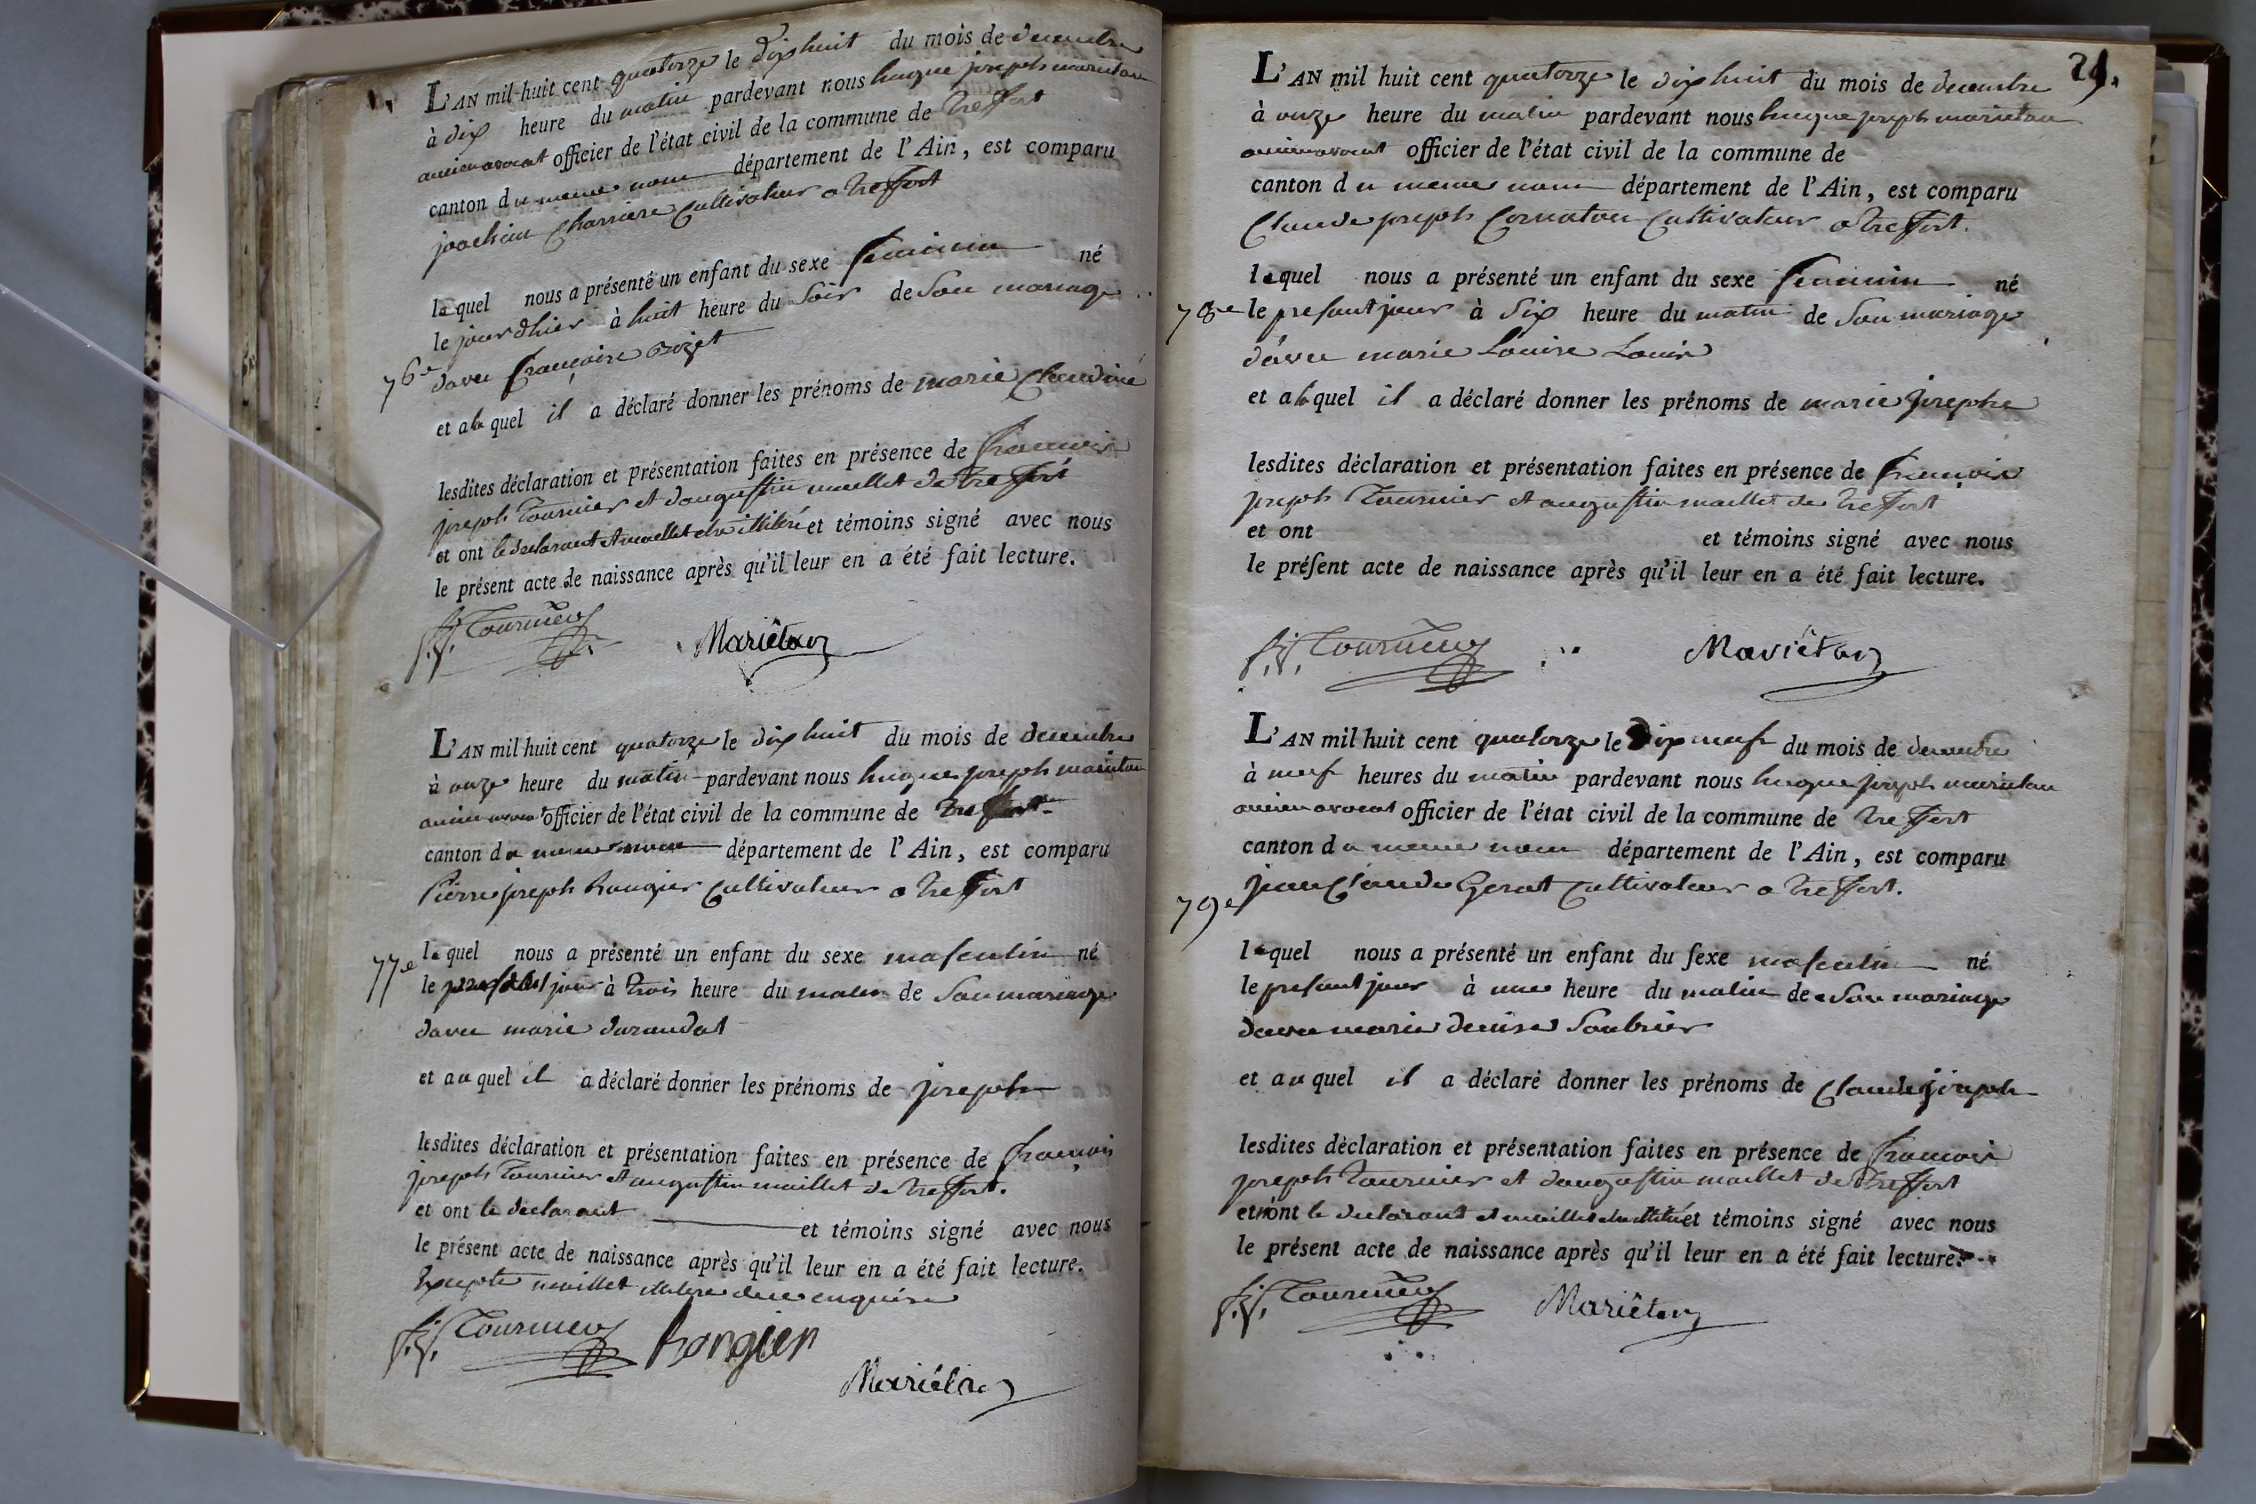 L'AN mil huit cent quatorze le dix huit du mois de decembre
à dix heure du matin pardevant nous hugue joseph marietan
ancien avocat officier de l'état civil de la commune de treffort
canton du meme nom département de l'Ain, est comparu
joachim Charriere Cultivateur a treffort
lequel nous a présenté un enfant du sexe feminin né
le jour dhier à huit heure du soir de son mariage
76e davec françoise
et alaquel il a déclaré donner les prénoms de marie Claudine
lesdites déclaration et présentation faites en présence de francois
joseph tournier et daugustin maillet de treffort
et ont le declarant et maillet illitéré et témoins signé avec nous
le présent acte de naissance après qu'il leur en a été fait lecture.
f.j. Tournier Mariétan
L'AN mil huit cent quatorze le dix huit du mois de decembre
à onze heure du matin pardevant nous hugue joseph marietan
ancien avocat officier de l'état civil de la commune de treffort
canton du meme nom département de l'Ain, est comparu
Pierre joseph Rongier Cultivateur a treffort
lequel nous a présenté un enfant du sexe masculin né
77e le present jour à trois heure du matin de son mariage
davec marie durandat
et auquel il a déclaré donner les prénoms de joseph
lesdites déclaration et présentation faites en présence de françois
joseph tournier et augustin maillet de treffort.
et ont le declarant et témoins signé avec nous
le présent acte de naissance après qu'il leur en a été fait lecture.
Excepté maillet illitere de ce enquis
f.j. Tournier Rongier
Mariétan
29.
L'AN mil huit cent quatorze le dix huit du mois de decembre
à onze heure du matin pardevant nous hugue joseph marietan
ancien avocat officier de l'état civil de la commune de
canton du meme nom département de l'Ain, est comparu
Claude joseph Cornaton Cultivateur a treffort.
lequel nous a présenté un enfant du sexe feminin né
78e le present jour à six heure du matin de son mariage
davec marie Louise Louis
et alaquel il a déclaré donner les prénoms de marie josephe
lesdites déclaration et présentation faites en présence de francois
joseph tournier et augustin maillet de treffort
et ont et témoins signé avec nous
le présent acte de naissance après qu'il leur en a été fait lecture.
f.j. Tournier Mariétan
L'AN mil huit cent quatorze le dix neuf du mois de decembre
à neuf heures du matin pardevant nous hugue joseph marietan
ancien avocat officier de l'état civil de la commune de treffort
canton du meme nom département de l'Ain, est comparu
79e jean Claude Cultivateur a treffort.
lequel nous a présenté un enfant du sexe masculin né
le present jour à une heure du matin de son mariage
davec marie denise Soubrier
et auquel il a déclaré donner les prénoms de Claude joseph
lesdites déclaration et présentation faites en présence de francois
joseph tournier et daugustin maillet de treffort
et ont le declarant et maillet et témoins signé avec nous
le présent acte de naissance après qu'il leur en a été fait lecture.
f.j. Tournier Mariétan